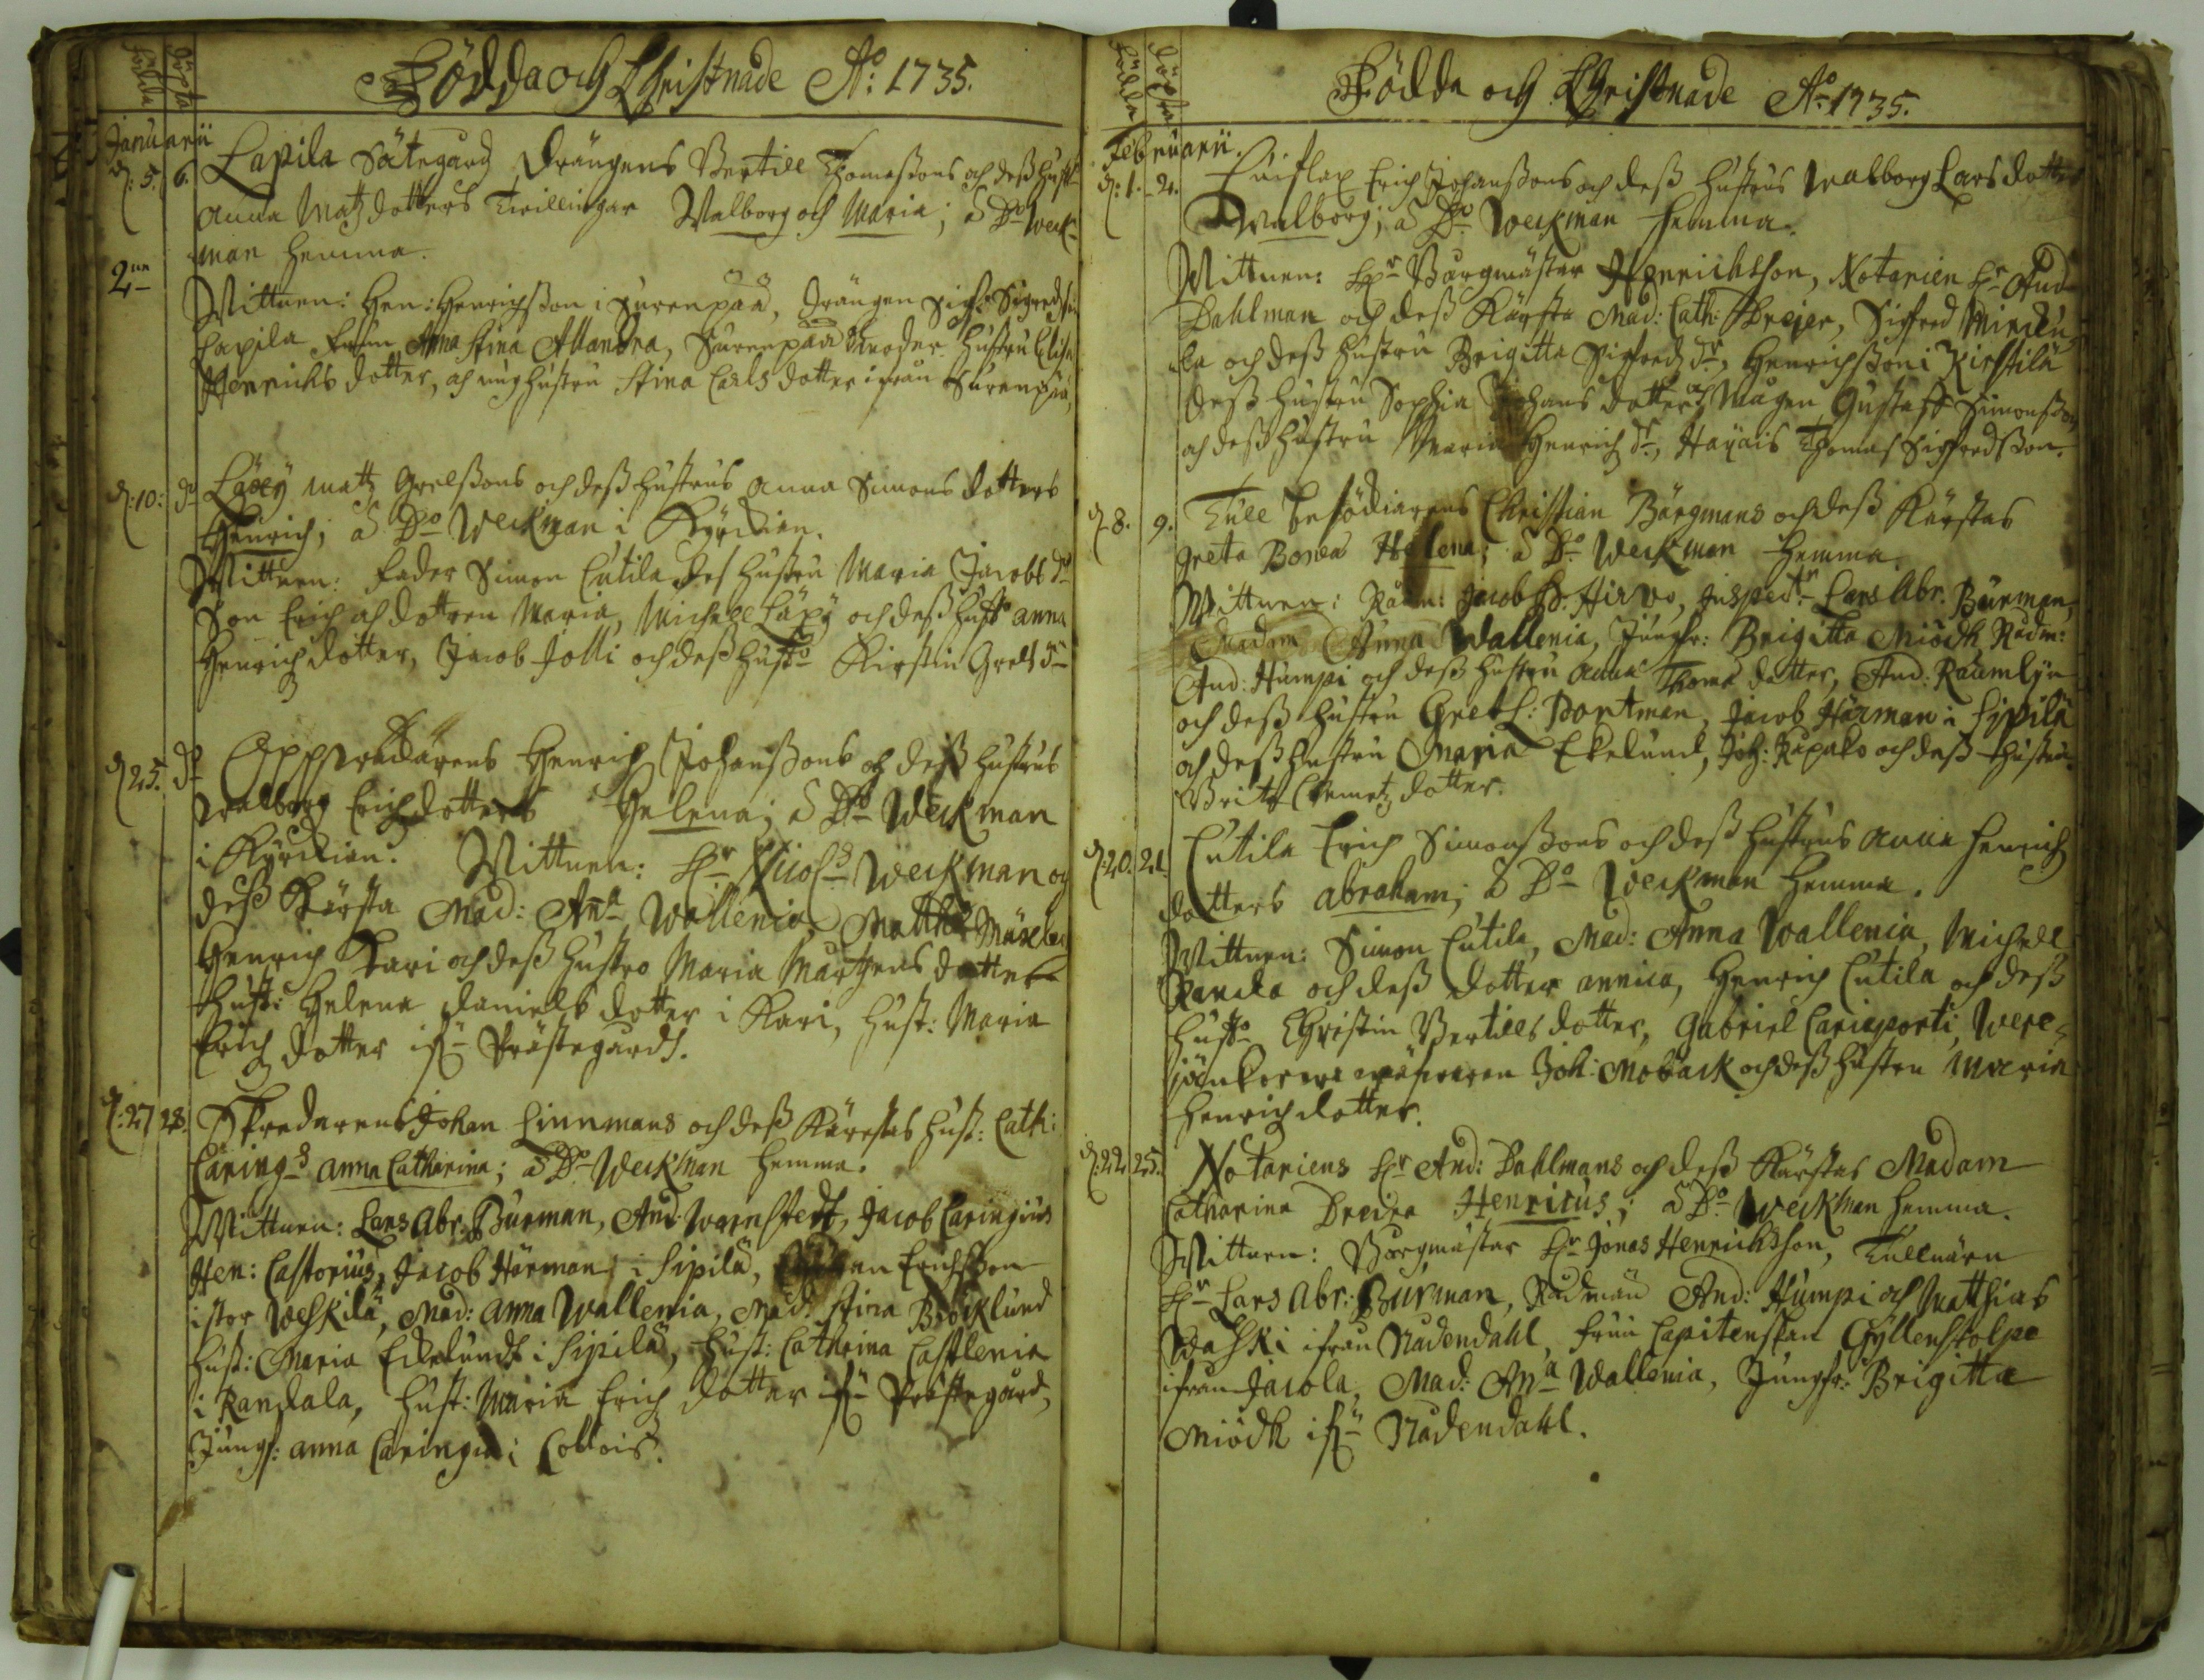 födda döpta
Födda och Christnade Ao: 1735.
Januarii
d: 5. 6. Lapila Sätegårdz drängens Bertill Thomassons och dess hust:
Anna Matzdotters Tvillingar Walborg och Maria; à Do Weck-
man hemma.
2ne
Wittnen: Hen: Henrichsson i Surenpää, drängen Sigf: Sigfreds:
Lapila fruun Anna Stina Allandra, Surenpää Moder hustru Elisa
Henrichs dotter, och ung hustru Stina Carls dotter ifrån Surenpää,
d: 10: do Läxy Matz Grelssons och dess hustrus Anna Simons dotters
Henrich; à Do Weckman i Kyrckian.
Wittnen: fader Simon Cutila des hustru Maria Jacobs dr
Son Erich och dottren Maria, Michell Läxy och dess hust: Anna
Henrichdotter, Jacob Jolli och dess husto Kirstin Grels dr
d 25. do Henrich Johanssons och dess hustrus
Walborg Erichdotters Helena; à Do Weckman
i Kyrckian. Wittnen: Hr Nicol: Weckman och
dess Kärsta Mad: Ana Wallenia, Matths
Henrich Kari och dess hustro Maria Mårtens dotter
Hust: Helena Daniels dotter i Kari, hust: Maria
Erich dotter ifrn Prästegårds.
d: 27 28. Skredarens Johan Linnmans och dess Kärestas hust: Cath:
Caring: Anna Catharina; à Do Weckman hemma.
Wittnen: Lars Abr: Burman, And: Warnstedt, Jacob Caringius
Hen: Castorius, Jacob Hörman i Sipilä, Erichsson
i stor Weskilä, Mad: Anna Wallenia, Mad: Stina Bröcklund
Hust: Maria Eckelundh i Sipilä, hust: Cathrina Castlenia
i Randala, hust: Maria Erich dotter ifrn Prästegård,
Jungf: Anna Caringia i Collois.
födda döpta
Födda och Christnade Ao: 1735.
Februarii.
d: 1. 2. Luislax Erich Johanssons och dess hustrus Walborg Larsdotters
Walborg; à Do Weckman hemma.
Wittnen: Hr Borgmästar Henrichsson, Notarien Hr And:
Dahlman och dess Kärsta Mad: Cath: Dreijer, Sigfred
la och dess hustru Brigitta Sigfredz dr, Henrichsson i Kirstilä
dess hustru Sophia Johans dotter, Mågen Gustaff Simonsson
och dess hustru Maria Henrich dr, Hayais Thomas Sigfredsson.
d 8. 9. Tull besökiarens Christian Bärgmans och dess Kärstas
Greta Bonea Helena; à Do Weckman hemma.
Wittnen: Rådm: Jacob Hirvo, Inspectr Lars Abr. Burman,
Madam Anna Wallenia, Jungfr: Brigitta Miödh, Rådm:
And: Humpi och dess hustru Anna Thoms dotter, And: Raumlyn
och dess hustru Gret: Bortman, Jacob Hörman i Sipilä
och dess hustru Maria Ekelund, Joh: Rapako och dess hustru
Brita Clemetz dotter.
d: 20. 21. Cutila Erich Simonssons och dess hustrus Anna Henrich
dotters Abraham; à Do Weckman hemma.
Wittnen: Simon Cutila, Mad: Anna Wallenia, Michell
Randa och dess dotter Annica, Henrich Cutila och dess
husto Christin Bertills dotter, Gabriel Cariaporti,
Joh: Moback och dess hustru Maria
Henrichdotter.
d: 22 25. Notariens Hr And: Dahlmans och dess Kärstas Madam
Catharina Dreijra Henricus; à Do Weckman hemma.
Wittnen: Borgmästar Hr Jonas Henrichsson, Tullnärn
Hr Lars Abr: Burman, Rådmän And: Humpi och Matthias
Waski ifrån Nådendahl, fruu Capitenskan Gyllenstolpe
ifrån Jacola, Mad: Ana Wallenia, Jungfr: Brigitta
Miödh ifrn Nådendahl.